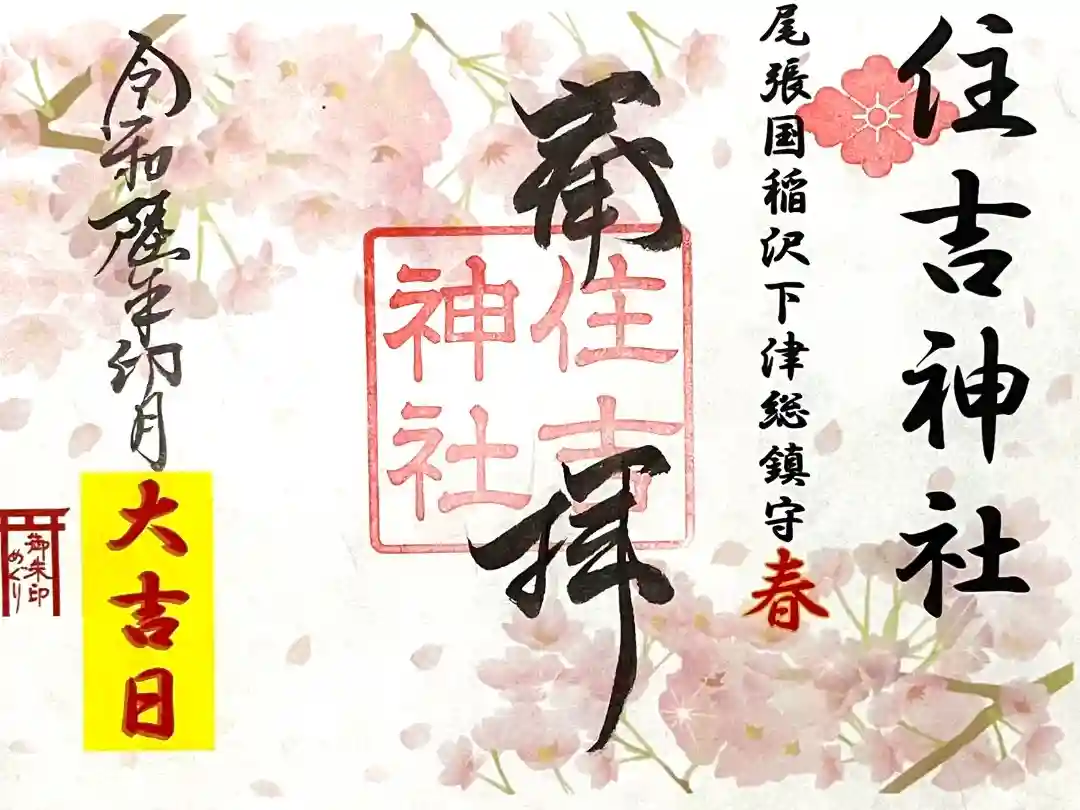 住吉神社
尾張国稲沢下津総鎮守
春
奉拝
住吉
神社
令和陸年卯月
大吉日
御朱印
めぐり